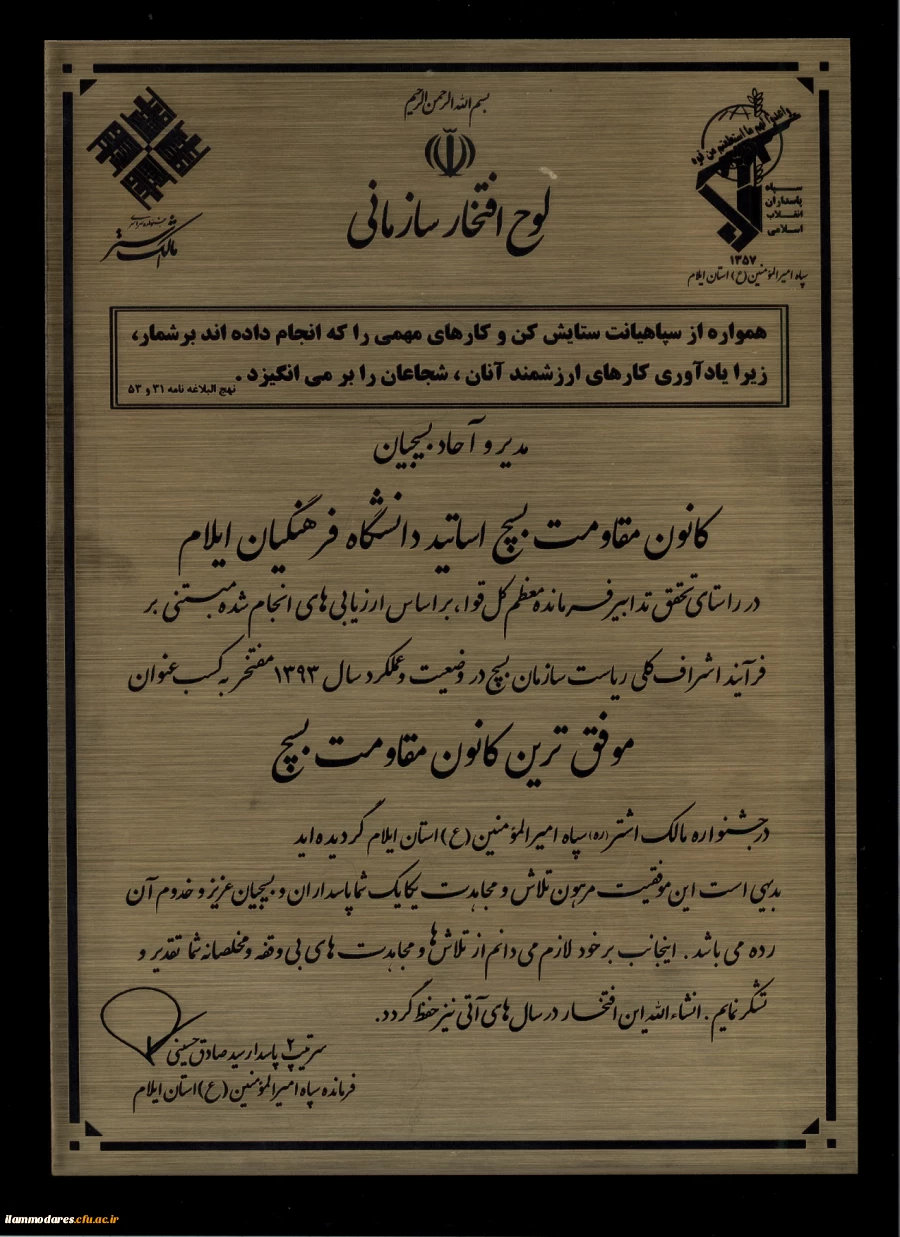 بسم الله الرحمن الرحیم
لوح افتخار سازمانی
واعدوا لهم ما استطعتم من قوة
سپاه
پاسداران
انقلاب
اسلامی
۱۳۵۷
سپاه امیرالمؤمنین (ع) استان ایلام
جشنواره سراسری
مالک اشتر
همواره از سپاهیانت ستایش کن و کارهای مهمی را که انجام داده اند برشمار،
زیرا یادآوری کارهای ارزشمند آنان ، شجاعان را بر می انگیزد .
نهج البلاغه نامه ۳۱ و ۵۳
مدیر و آحاد بسیجیان
کانون مقاومت بسیج اساتید دانشگاه فرهنگیان ایلام
در راستای تحقق تدابیر فرمانده معظم کل قوا، بر اساس ارزیابی های انجام شده مبتنی بر
فرآیند اشراف کلی ریاست سازمان بسیج در وضعیت و عملکرد سال ۱۳۹۳ مفتخر به کسب عنوان
موفق ترین کانون مقاومت بسیج
در جشنواره مالک اشتر (ره) سپاه امیرالمؤمنین (ع) استان ایلام گردیده اید
بدیهی است این موفقیت مرهون تلاش و مجاهدت یکایک شما پاسداران و بسیجیان عزیز و خدوم آن
رده می باشد . اینجانب بر خود لازم می دانم از تلاش ها و مجاهدت های بی وقفه و مخلصانه شما تقدیر و
تشکر نمایم . انشاءالله این افتخار در سال های آتی نیز حفظ گردد.
سرتیپ ۲ پاسدار سید صادق حسینی
فرمانده سپاه امیرالمؤمنین (ع) استان ایلام
ilammodares.cfu.ac.ir